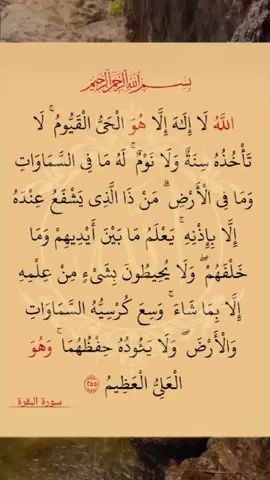 بِسْمِ اللَّهِ الرَّحْمَٰنِ الرَّحِيمِ
اللَّهُ لَا إِلَٰهَ إِلَّا هُوَ الْحَيُّ الْقَيُّومُ ۚ لَا
تَأْخُذُهُ سِنَةٌ وَلَا نَوْمٌ ۚ لَهُ مَا فِي السَّمَاوَاتِ
وَمَا فِي الْأَرْضِ ۗ مَنْ ذَا الَّذِي يَشْفَعُ عِنْدَهُ
إِلَّا بِإِذْنِهِ ۚ يَعْلَمُ مَا بَيْنَ أَيْدِيهِمْ وَمَا
خَلْفَهُمْ ۖ وَلَا يُحِيطُونَ بِشَيْءٍ مِنْ عِلْمِهِ
إِلَّا بِمَا شَاءَ ۚ وَسِعَ كُرْسِيُّهُ السَّمَاوَاتِ
وَالْأَرْضَ ۖ وَلَا يَئُودُهُ حِفْظُهُمَا ۚ وَهُوَ
الْعَلِيُّ الْعَظِيمُ ۝٢٥٥
سورة البقرة